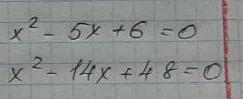 x² - 5x + 6 = 0
x² - 14x + 48 = 0